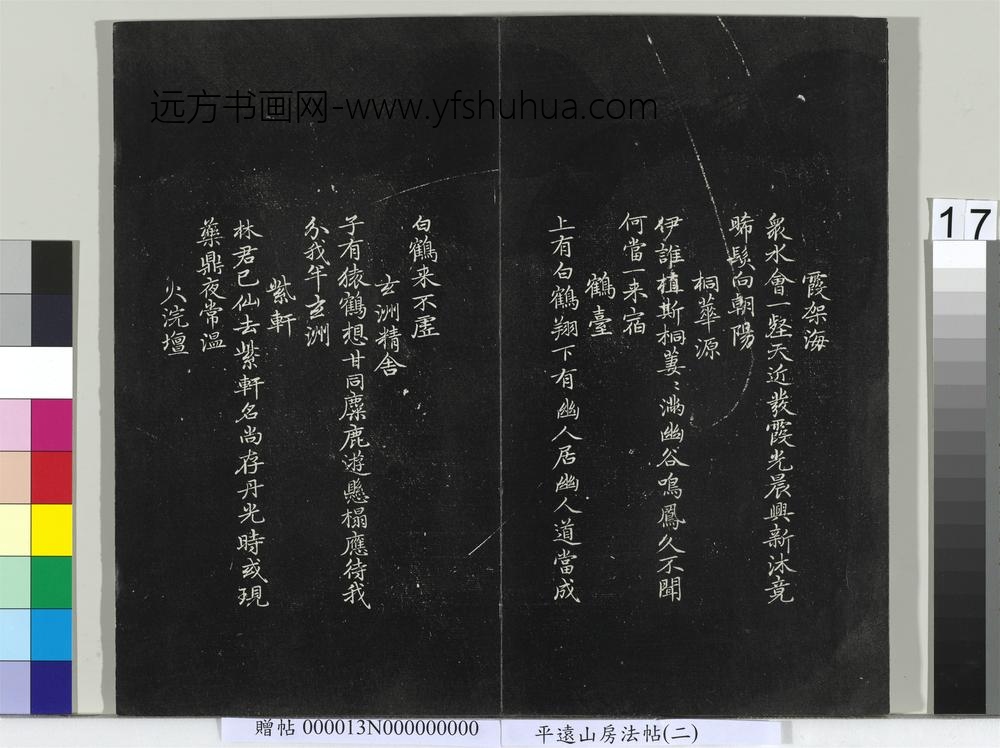 远方书画网-www.yfshuhua.com
17
霞架海
衆水會一壑天近發霞光晨興新沐竟
晞髮向朝陽
桐華源
伊誰植斯桐萋〻滿幽谷鳴鳳久不聞
何當一来宿
鶴臺
上有白鶴翔下有幽人居幽人道當成
白鶴来不虛
玄洲精舍
子有猿鶴想甘同麋鹿遊懸榻應待我
分我半玄洲
紫軒
林君已仙去紫軒名尚存丹光時或現
藥鼎夜常溫
火浣壇
贈帖 000013N000000000
平遠山房法帖(二)